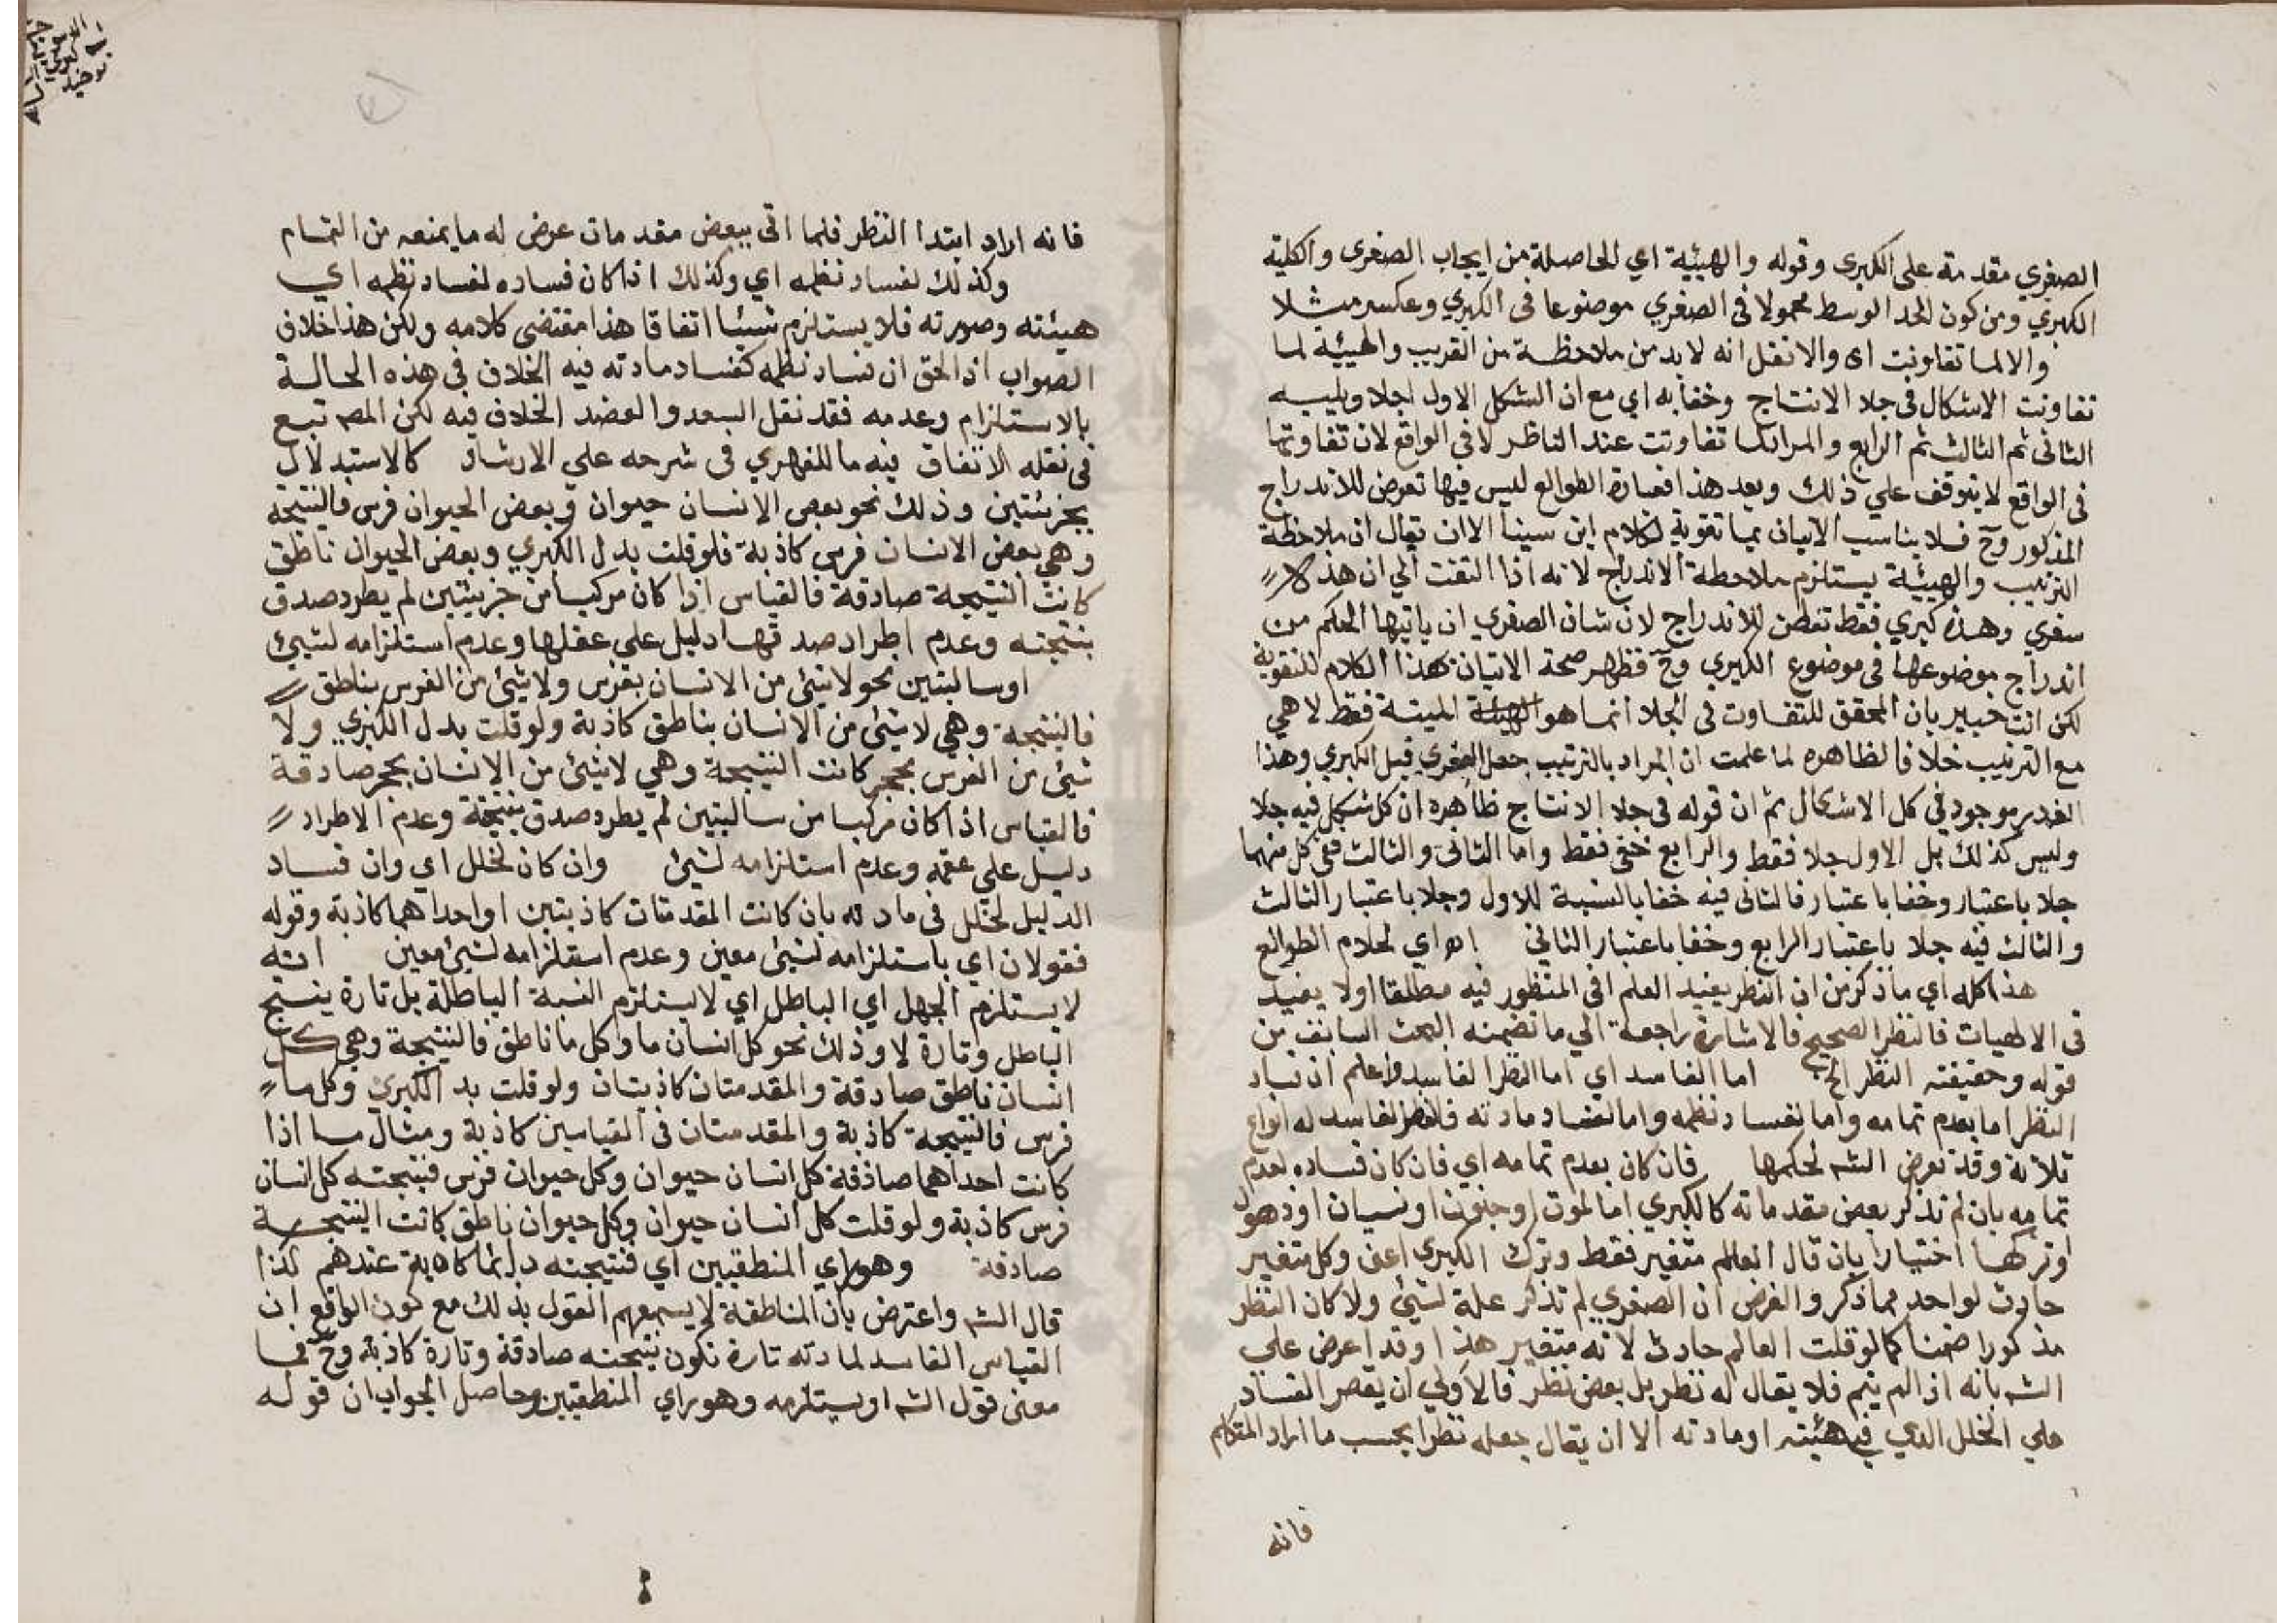 الصغري مقدمة على الكبرى وقوله والهيئية اي الحاصلة من ايجاب الصغرى والكلية
الكبري ومن كون الحد الوسط محمولا فى الصغري موضوعا فى الكبري وعكسه مثلا
والالما تفاوتت اى والانقل انه لابد من ملاحظة من القريب والهيئية لما
تفاوتت الاشكال فى جلا الانتاج وخفائه اي مع ان الشكل الاول اجلا ويليه
الثانى ثم الثالث ثم الرابع والمراد تفاوتت عند الناظر لا فى الواقع لان تفاوتها
فى الواقع لا يتوقف علي ذلك وبعد هذا فعبارة الطوالع ليس فيها تعرض للاندراج
المذكور وح فلا يناسب الاتيان بها تقوية لكلام ابن سينا الا ان يقال ان ملاحظة
الترتيب والهيئية يستلزم ملاحظة الاندراج لانه اذا التفت الي ان هذه
سغري وهذه كبري فقط تفطن للاندراج لان شان الصغري ان ياتيها الحكم من
اندراج موضوعها فى موضوع الكبري وح فظهر صحة الاتيان بهذا الكلام للتقوية
لكن انت خبير بان المحقق للتفاوت فى الجلا انما هو الهيئة فقط لا هي
مع الترتيب خلافا لظاهره لما علمت ان المراد بالترتيب جعل الصغري قبل الكبري وهذا
القدر موجود في كل الاشكال ثم ان قوله فى جلا الانتاج ظاهره ان كل شكل فيه جلا
وليس كذلك بل الاول جلا فقط والرابع خفى فقط واما الثانى والثالث ففى كل منهما
جلا باعتبار وخفا باعتبار فالثانى فيه خفا بالنسبة للاول وجلا باعتبار الثالث
والثالث فيه جلا باعتبار الرابع وخفا باعتبار الثاني اه اي كلام الطوالع
هذا كله اي ما ذكر من ان النظر يفيد العلم فى المنظور فيه مطلقا او لا يفيد
فى الالهيات فالنظر الصحيح فالاشارة راجعة الي ما تضمنه البحث السابق من
قوله وحقيقته النظر الخ اما الفاسد اي اما النظر الفاسد واعلم ان فساد
النظر اما بعدم تمامه واما بفساد نظمه واما بفساد مادته فالنظر الفاسد له انواع
ثلاثة وقد تعرض الشه لحكمها فان كان بعدم تمامه اي فان كان فساده لعدم
تمامه بان لم تذكر بعض مقدماته كالكبري اما لموت او جنون او نسيان او ذهول
او تركها اختيارا بان قال العالم متغير فقط وترك الكبري اعنى وكل متغير
حادث لواحد مما ذكر والفرض ان الصغري لم تذكر علة لشئ ولا كان النظر
مذكورا ضمنا كما لو قلت العالم حادث لانه متغير هذا وقد اعرض على
الشه بانه اذا لم يتم فلا يقال له نظر بل بعض نظر فالاولي ان يقصر الفساد
علي الخلل الذي في هيئته او مادته الا ان يقال جعله نظرا بحسب ما اراد المتكلم
فانه
فانه اراد ابتدا النظر فلما اتى ببعض مقدمات عرض له ما يمنعه من التمام
وكذلك لفساد نظمه اي وكذلك اذا كان فساده لفساد نظمه اي
هيئته وصورته فلا يستلزم شيئا اتفاقا هذا مقتضى كلامه ولكن هذا خلاف
الصواب اذ الحق ان فساد نظمه كفساد مادته فيه الخلاف فى هذه الحالة
بالاستلزام وعدمه فقد نقل السعد والعضد الخلاف فيه لكن المصه تبع
فى نقله الاتفاق فيه ما للفهري فى شرحه علي الارشاد كالاستدلال
بجزئيتين وذلك نحو بعض الانسان حيوان وبعض الحيوان فرس فالنتيجة
وهي بعض الانسان فرس كاذبة فلو قلت بدل الكبري وبعض الحيوان ناطق
كانت النتيجة صادقة فالقياس اذا كان مركبا من جزيئتين لم يطرد صدق
نتيجته وعدم اطراد صدقها دليل على عقلها وعدم استلزامه لشيئ
اوسالبتين نحو لا شئ من الانسان بفرس ولا شئ من الفرس بناطق
فالنتيجة وهي لا شئ من الانسان بناطق كاذبة ولو قلت بدل الكبري ولا
شئ من الفرس بحجر كانت النتيجة وهي لا شئ من الانسان بحجر صادقة
فالقياس اذا كان مركبا من سالبتين لم يطرد صدق نتيجة وعدم الاطراد
دليل علي عقمه وعدم استلزامه لشئ وان كان لخلل اي وان فساد
الدليل لخلل فى مادته بان كانت المقدمتان كاذبتين او احداهما كاذبة وقوله
فقولان اي باستلزامه لشئ معين وعدم استلزامه لشئ معين انه
لا يستلزم الجهل اي الباطل اي لا يستلزم النسبة الباطلة بل تارة ينتج
الباطل وتارة لا وذلك نحو كل انسان ما وكل ما ناطق فالنتيجة وهي كل
انسان ناطق صادقة والمقدمتان كاذبتان ولو قلت بد الكبري وكل ما
فرس فالنتيجة كاذبة والمقدمتان فى القياسين كاذبة ومثال ما اذا
كانت احداهما صادقة كل انسان حيوان وكل حيوان فرس فنتيجته كل انسان
فرس كاذبة ولو قلت كل انسان حيوان وكل حيوان ناطق كانت النتيجة
صادقة وهو راي المنطقيين اي فنتيجته دائما كاذبة عندهم كذا
قال الشه واعترض بان المناطقة لا يسعهم القول بذلك مع كون الواقع ان
القياس الفاسد لمادته تارة تكون نتيجته صادقة وتارة كاذبة وح فما
معنى قول الشه او يستلزمه وهو راي المنطقيين وحاصل الجواب ان قوله